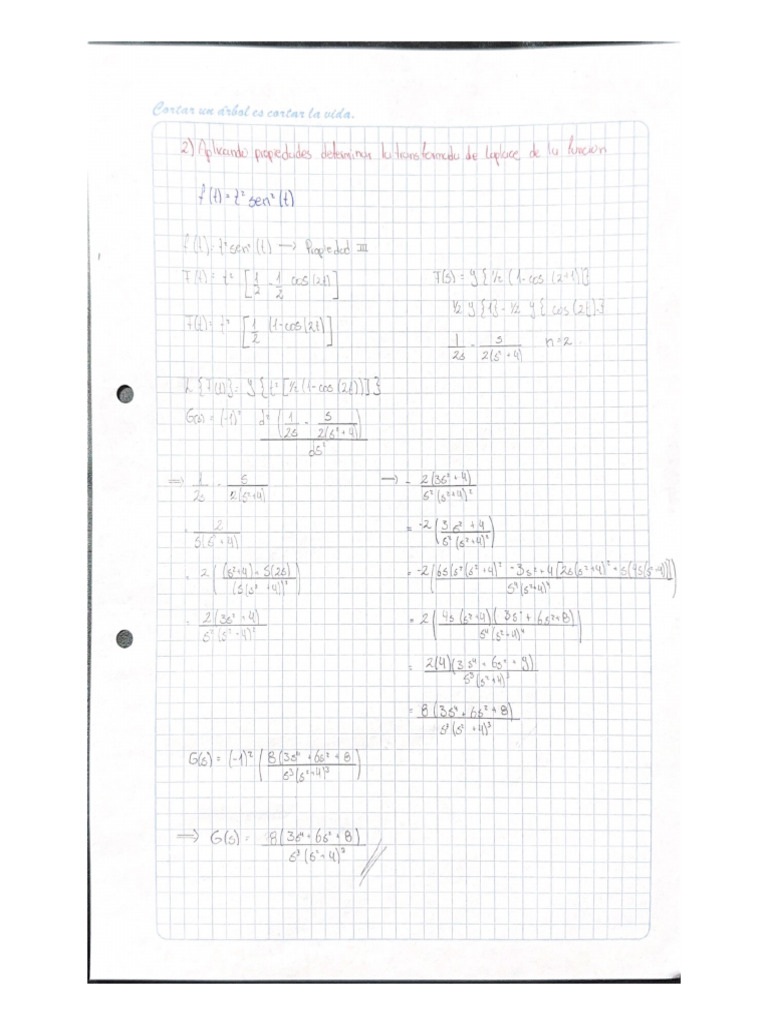 Cortar un árbol es cortar la vida.
2) Aplicando propiedades determinar la transformada de laplace de la función
f(t) = t² sen²(t)
f(t) = t² sen²(t) → Propiedad III
F(t) = t² [1/2 - 1/2 cos(2t)]
F(t) = t² [1/2 (1-cos(2t)]
F(s) = y{ 1/2 (1-cos(2t))}
1/2 y{1} - 1/2 y{cos(2t)}
1/2s - s/2(s²+4) n=2
L{F(t)} = y{t²[1/2(1-cos(2t))]}
G(s) = (-1)² d²(1/2s - s/2(s²+4))/ds²
⇒ 1/2s - s/2(s²+4)
= 2/s(s²+4)
= 2((s²+4)+s(2s)/(s(s²+4))²)
= 2(3s²+4)/s²(s²+4)²
→ - 2(3s²+4)/s²(s²+4)²
= -2(3s²+4/s²(s²+4)²)
= -2(6s(s²(s²+4)² - 3s²+4[2s(s²+4)²+s(4s(s²+4)]])/s⁴(s²+4)⁴)
= 2(4s(s²+4)(3s⁴+6s²+8)/s⁴(s²+4)⁴)
= 2(4)(3s⁴+6s²+8)/s³(s²+4)³
= 8(3s⁴+6s²+8)/s³(s²+4)³
G(s) = (-1)² (8(3s⁴+6s²+8)/s³(s²+4)³)
⇒ G(s) = 8(3s⁴+6s²+8)/s³(s²+4)³